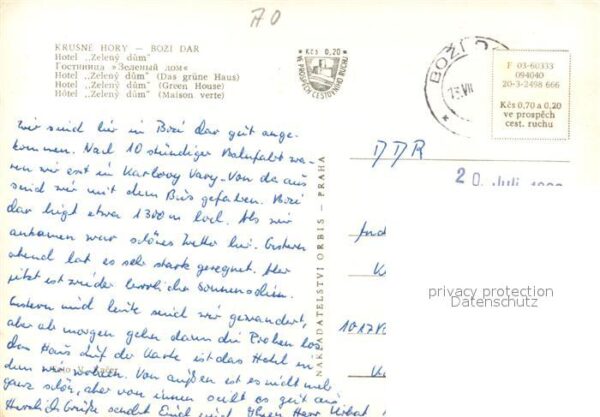 A0
KRUŠNÉ HORY — BOŽÍ DAR
Hotel „Zelený dům"
Гостиница »Зеленый дом«
Hotel „Zelený dům" (Das grüne Haus)
Hotel „Zelený dům" (Green House)
Hôtel „Zelený dům" (Maison verte)
Kčs 0,20
VE PROSPĚCH CESTOVNÍHO RUCHU
BOŽÍ D
VII
F 03-60333
094040
20-3-2498 666
Kčs 0,70 a 0,20
ve prospěch
cest. ruchu
Wir sind hier in Bozi Dar gut ange-
kommen. Nach 10 stündiger Bahnfahrt wa-
ren wir erst in Karlovy Vary. Von da aus
sind wir mit dem Bus gefahren. Bozi
dar liegt etwa 1300 m hoch. Als wir
ankamen war schönes Wetter hier. Gestern
abend hat es sehr stark geregnet. Aber
jetzt ist wieder herrlicher Sonnenschein.
Gestern und heute sind wir gewandert,
aber ab morgen gehen dann die Proben los.
Das Haus auf der Karte ist das Hotel in
dem wir wohnen. Von außen ist es nicht
ganz schön, aber von innen sieht es gut aus.
Herzliche Grüße sendet Euch und Ihnen Herr
NAKLADATELSTVÍ ORBIS - PRAHA
DDR
20. Juli
1017
privacy protection
Datenschutz